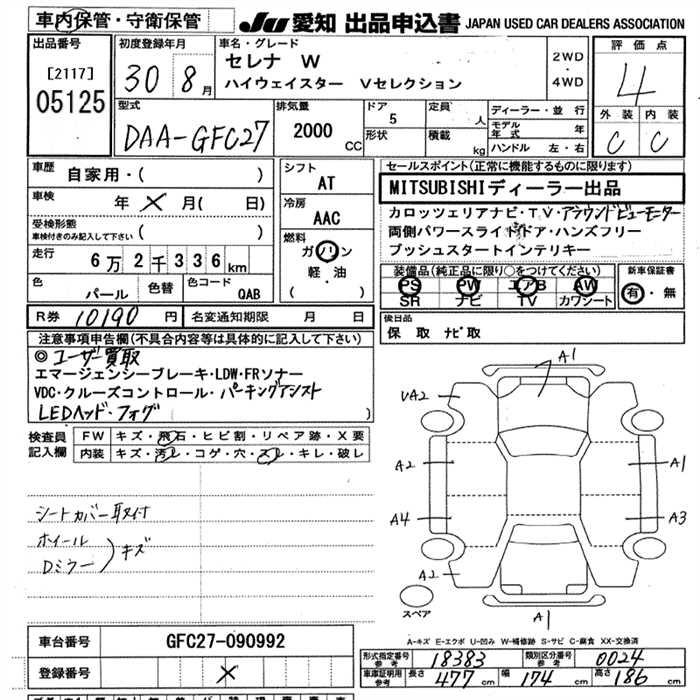 車内保管・守衛保管
JU 愛知 出品申込書 JAPAN USED CAR DEALERS ASSOCIATION
出品番号
[2117]
05125
初度登録年月
30 8月
車名・グレード
セレナ W
ハイウェイスター Vセレクション
2WD
・
4WD
評価点
4
外装 内装
C C
型式
DAA-GFC27
排気量
2000 CC
ドア
5
定員
人
形状
積載
kg
ディーラー・並行
モデル年式 年
ハンドル 左・右
車歴
自家用・( )
車検
年 X 月( 日)
受検形態
(車検付きのみ記入して下さい)
( )
走行
6万2千336km
色
パール
色替
色コード
QAB
シフト
AT
冷房
AAC
燃料
ガソリン
軽・油
( )
セールスポイント(正常に機能するものに限ります)
MITSUBISHIディーラー出品
カロッツェリアナビ・TV・アラウンドビューモニター
両側パワースライドドア・ハンズフリー
プッシュスタートインテリキー
装備品(純正品に限り○をつけてください)
PS PW エアB AW
SR ナビ TV カワシート
新車保証書
有・無
R券 10190 円
名変通知期限 月 日
後日品
保取 ナビ取
注意事項申告欄(不具合内容等は具体的に記入して下さい)
◎ユーザー買取
エマージェンシーブレーキ・LDW・FRソナー
VDC・クルーズコントロール・パーキングアシスト
LEDヘッド・フォグ )
検査員
記入欄
FW キズ・飛石・ヒビ割・リペア跡・X要
内装 キズ・汚レ・コゲ・穴・スレ・キレ・破レ
シートカバー取付
ホイール
Dミラー
)キズ
A1
UA2
A2
A1
A4
A3
A2
スペア
A1
A-キズ E-エクボ U-凹み W-補修跡 S-サビ C-腐食 XX-交換済
車台番号 GFC27-090992
登録番号 X
形式指定番号
参考
18383
類別区分番号
参考
0024
車庫証明用
参考
長さ 477cm 幅 174cm 高さ 186cm